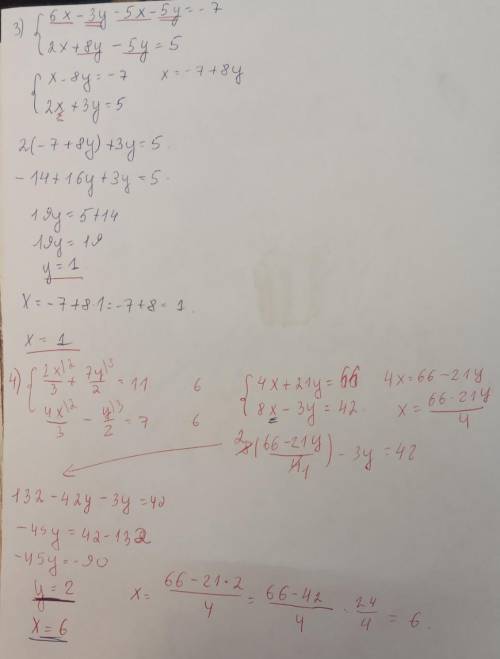 3) { 6x - 3y - 5x - 5y = - 7
2x + 8y - 5y = 5
{ x - 8y = -7 x = -7 + 8y
2x + 3y = 5
2(-7 + 8y) + 3y = 5.
- 14 + 16y + 3y = 5.
19y = 5 + 14
19y = 19
y = 1
x = -7 + 8·1 = -7 + 8 = 1.
x = 1
4) { 2x/3 )2 + 7y/2 )3 = 11 6
4x/3 )2 - y/2 )3 = 7 6
{ 4x + 21y = 66 4x = 66 - 21y
8x - 3y = 42. x = (66 - 21y)/4
2 8((66 - 21y)/4 1) - 3y = 42
132 - 42y - 3y = 42
-45y = 42 - 132
-45y = -90
y = 2
x = (66 - 21·2)/4 = (66 - 42)/4 · 24/4 = 6.
x = 6